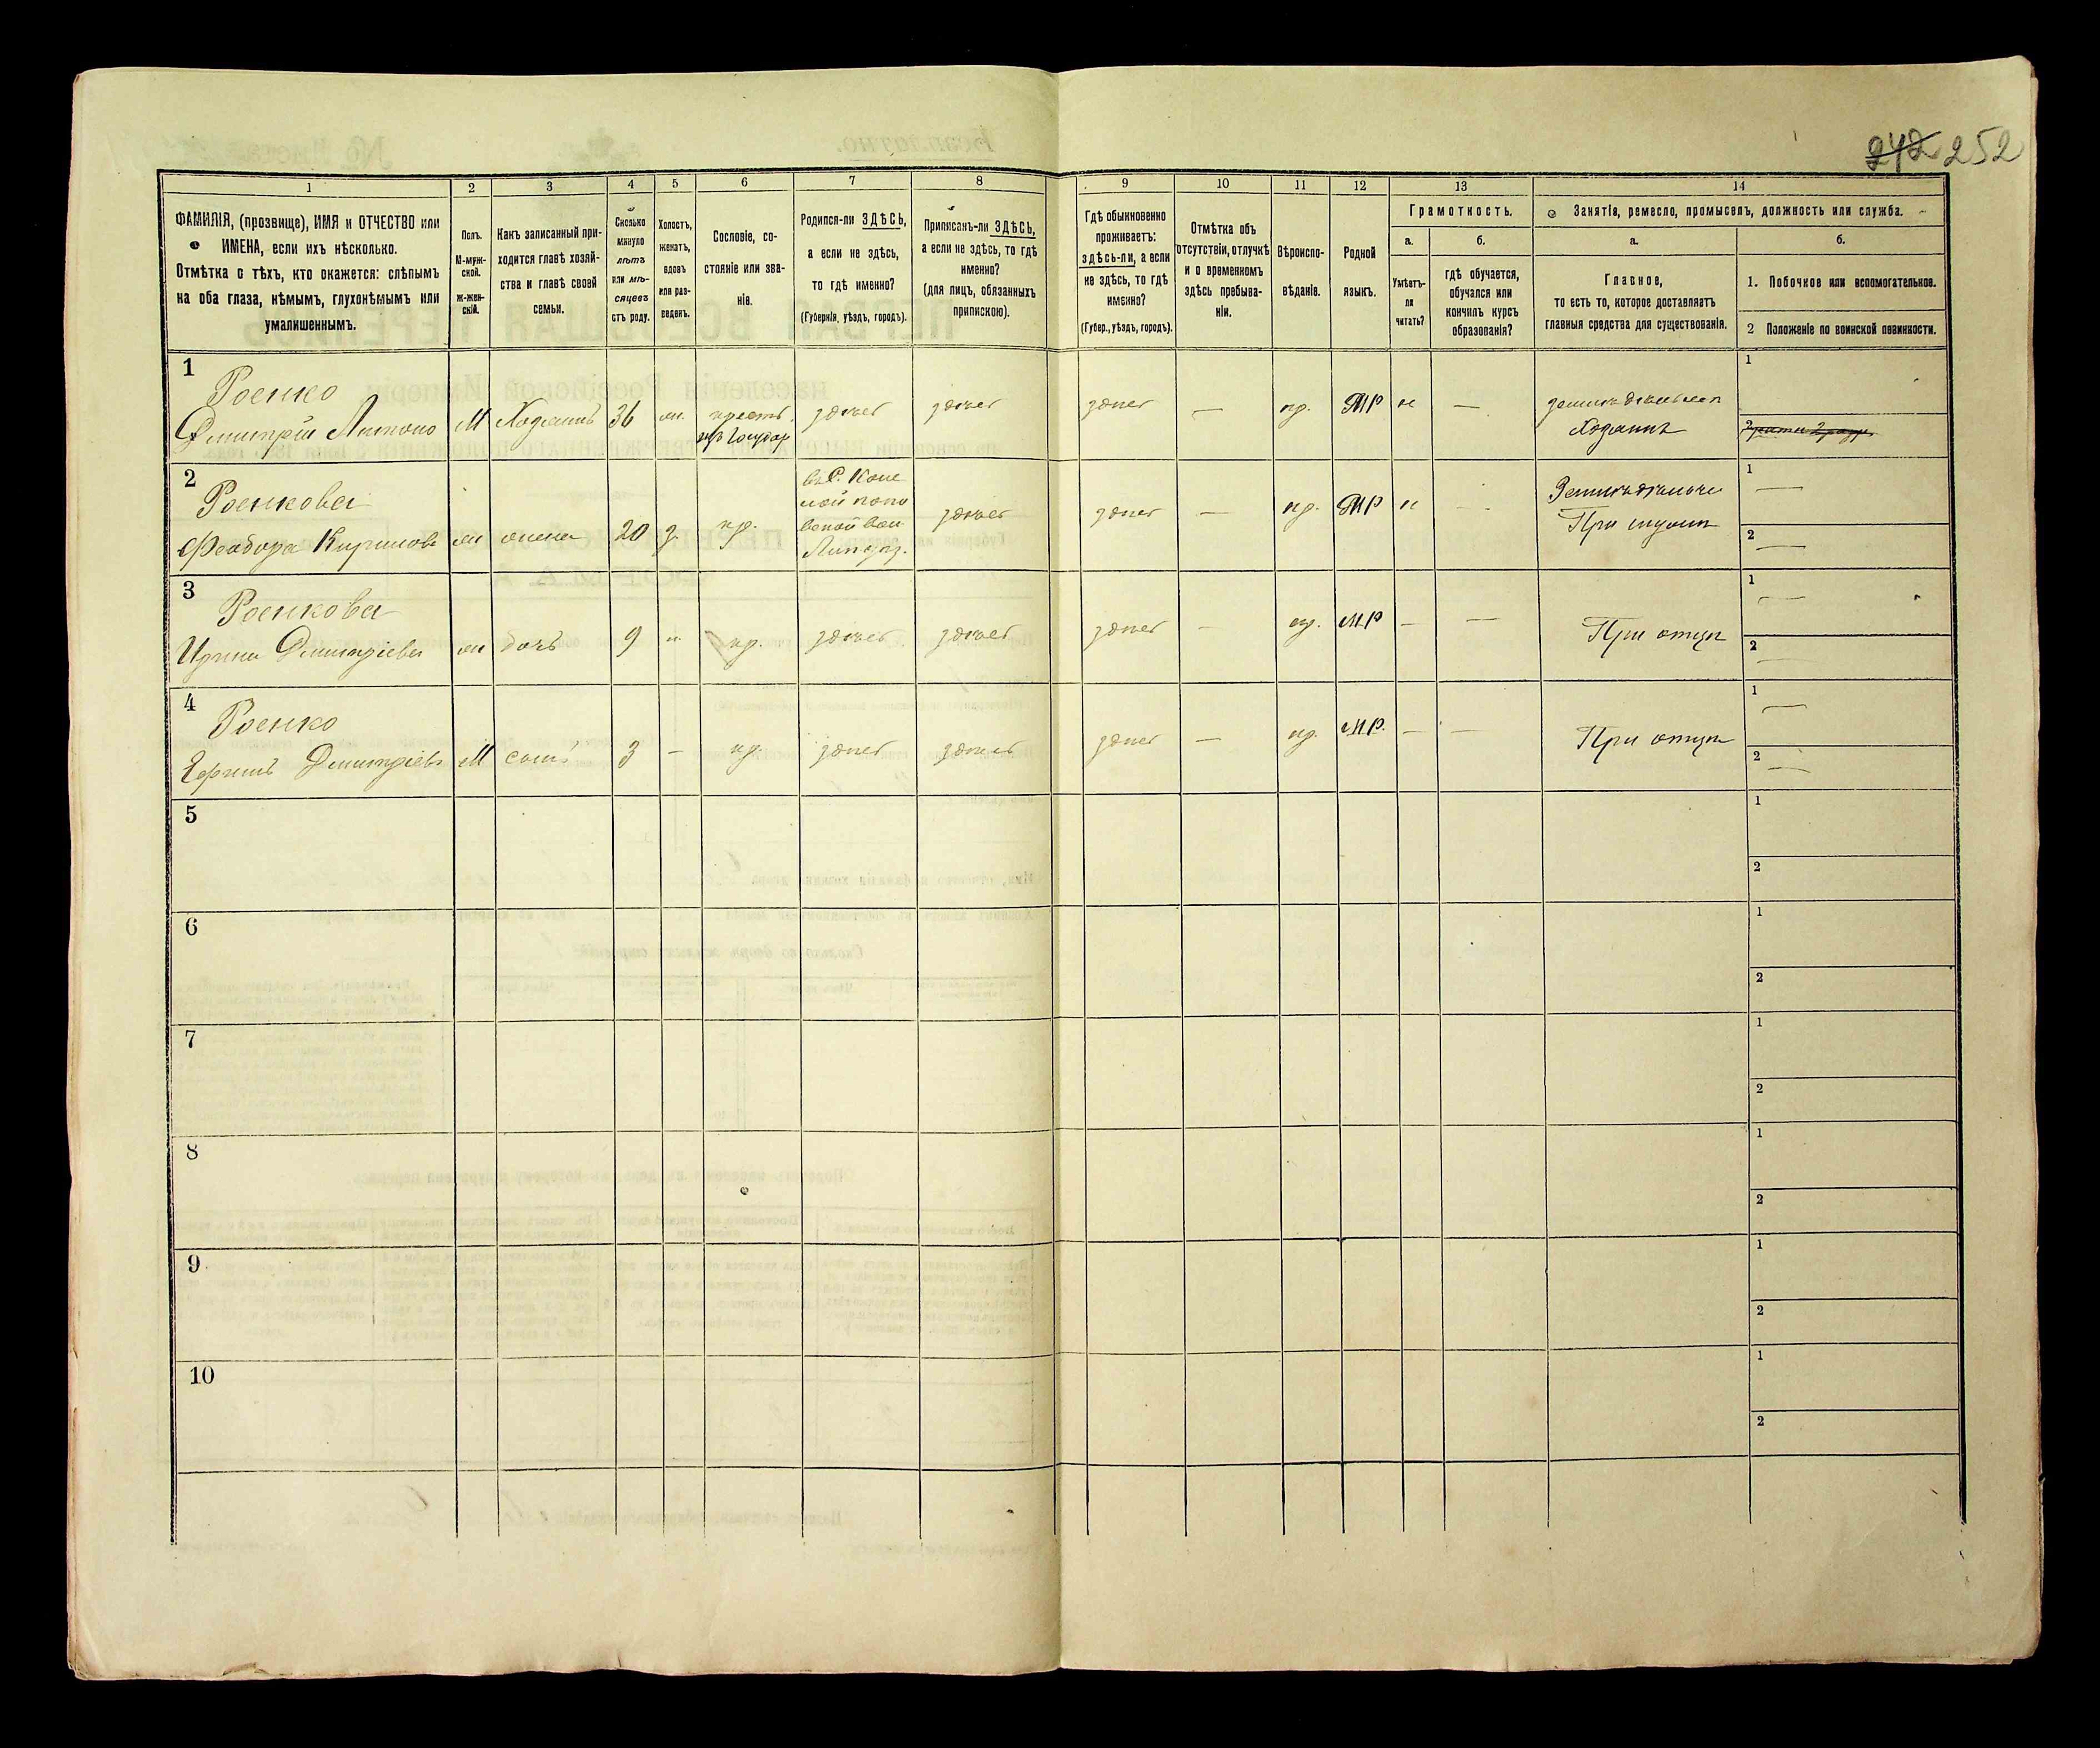 242 252
1 2 3 4 5 6 7 8 9 10 11 12 13 14
ФАМИЛІЯ, (прозвище), ИМЯ и ОТЧЕСТВО или
ИМЕНА, если ихъ нѣсколько.
Отмѣтка о тѣхъ, кто окажется: слѣпымъ
на оба глаза, нѣмымъ, глухонѣмымъ или
умалишеннымъ.
Полъ.
М-муж-
ской.
Ж-жен-
скій.
Какъ записанный при-
ходится главѣ хозяй-
ства и главѣ своей
семьи.
Сколько
минуло
лѣтъ
или мѣ-
сяцевъ
отъ роду.
Холостъ,
женатъ,
вдовъ
или раз-
веденъ.
Сословіе, со-
стояніе или зва-
ніе.
Родился-ли ЗДѢСЬ,
а если не здѣсь,
то гдѣ именно?
(Губернія, уѣздъ, городъ).
Приписанъ-ли ЗДѢСЬ,
а если не здѣсь, то гдѣ
именно?
(для лицъ, обязанныхъ
припискою).
Гдѣ обыкновенно
проживаетъ:
здѣсь-ли, а если
не здѣсь, то гдѣ
именно?
(Губер., уѣздъ, городъ).
Отмѣтка объ
отсутствіи, отлучкѣ
и о временномъ
здѣсь пребыва-
ніи.
Вѣроиспо-
вѣданіе.
Родной
языкъ.
Грамотность.
а.
Умѣетъ-
ли
читать?
б.
гдѣ обучается,
обучался или
кончилъ курсъ
образованія?
Занятіе, ремесло, промыселъ, должность или служба.
а.
Главное,
то есть то, которое доставляетъ
главныя средства для существованія.
б.
1. Побочное или вспомогательное.
2 Положеніе по воинской повинности.
1
Роенко
Дмитрій Антоно М Хозяинъ 36 жн. крест. здѣсь здѣсь здѣсь — пр. МР н —
изъ Государ
Хозяинъ
1
2
2
Роенкова
Феодора Кирилов ж жена 20 з. кр.
здѣсь здѣсь — пр. МР н
При мужѣ
1 —
2 —
3
Роенкова
Ирина Дмитріева ж дочь 9 — кр. здѣсь здѣсь здѣсь — пр. МР — —
При отцѣ
1 —
2 —
4
Роенко
Дмитріевъ М сынъ 3 — кр. здѣсь здѣсь здѣсь — пр. МР. — —
При отцѣ
1 —
2 —
5 1
2
6 1
2
7 1
2
8 1
2
9 1
2
10 1
2